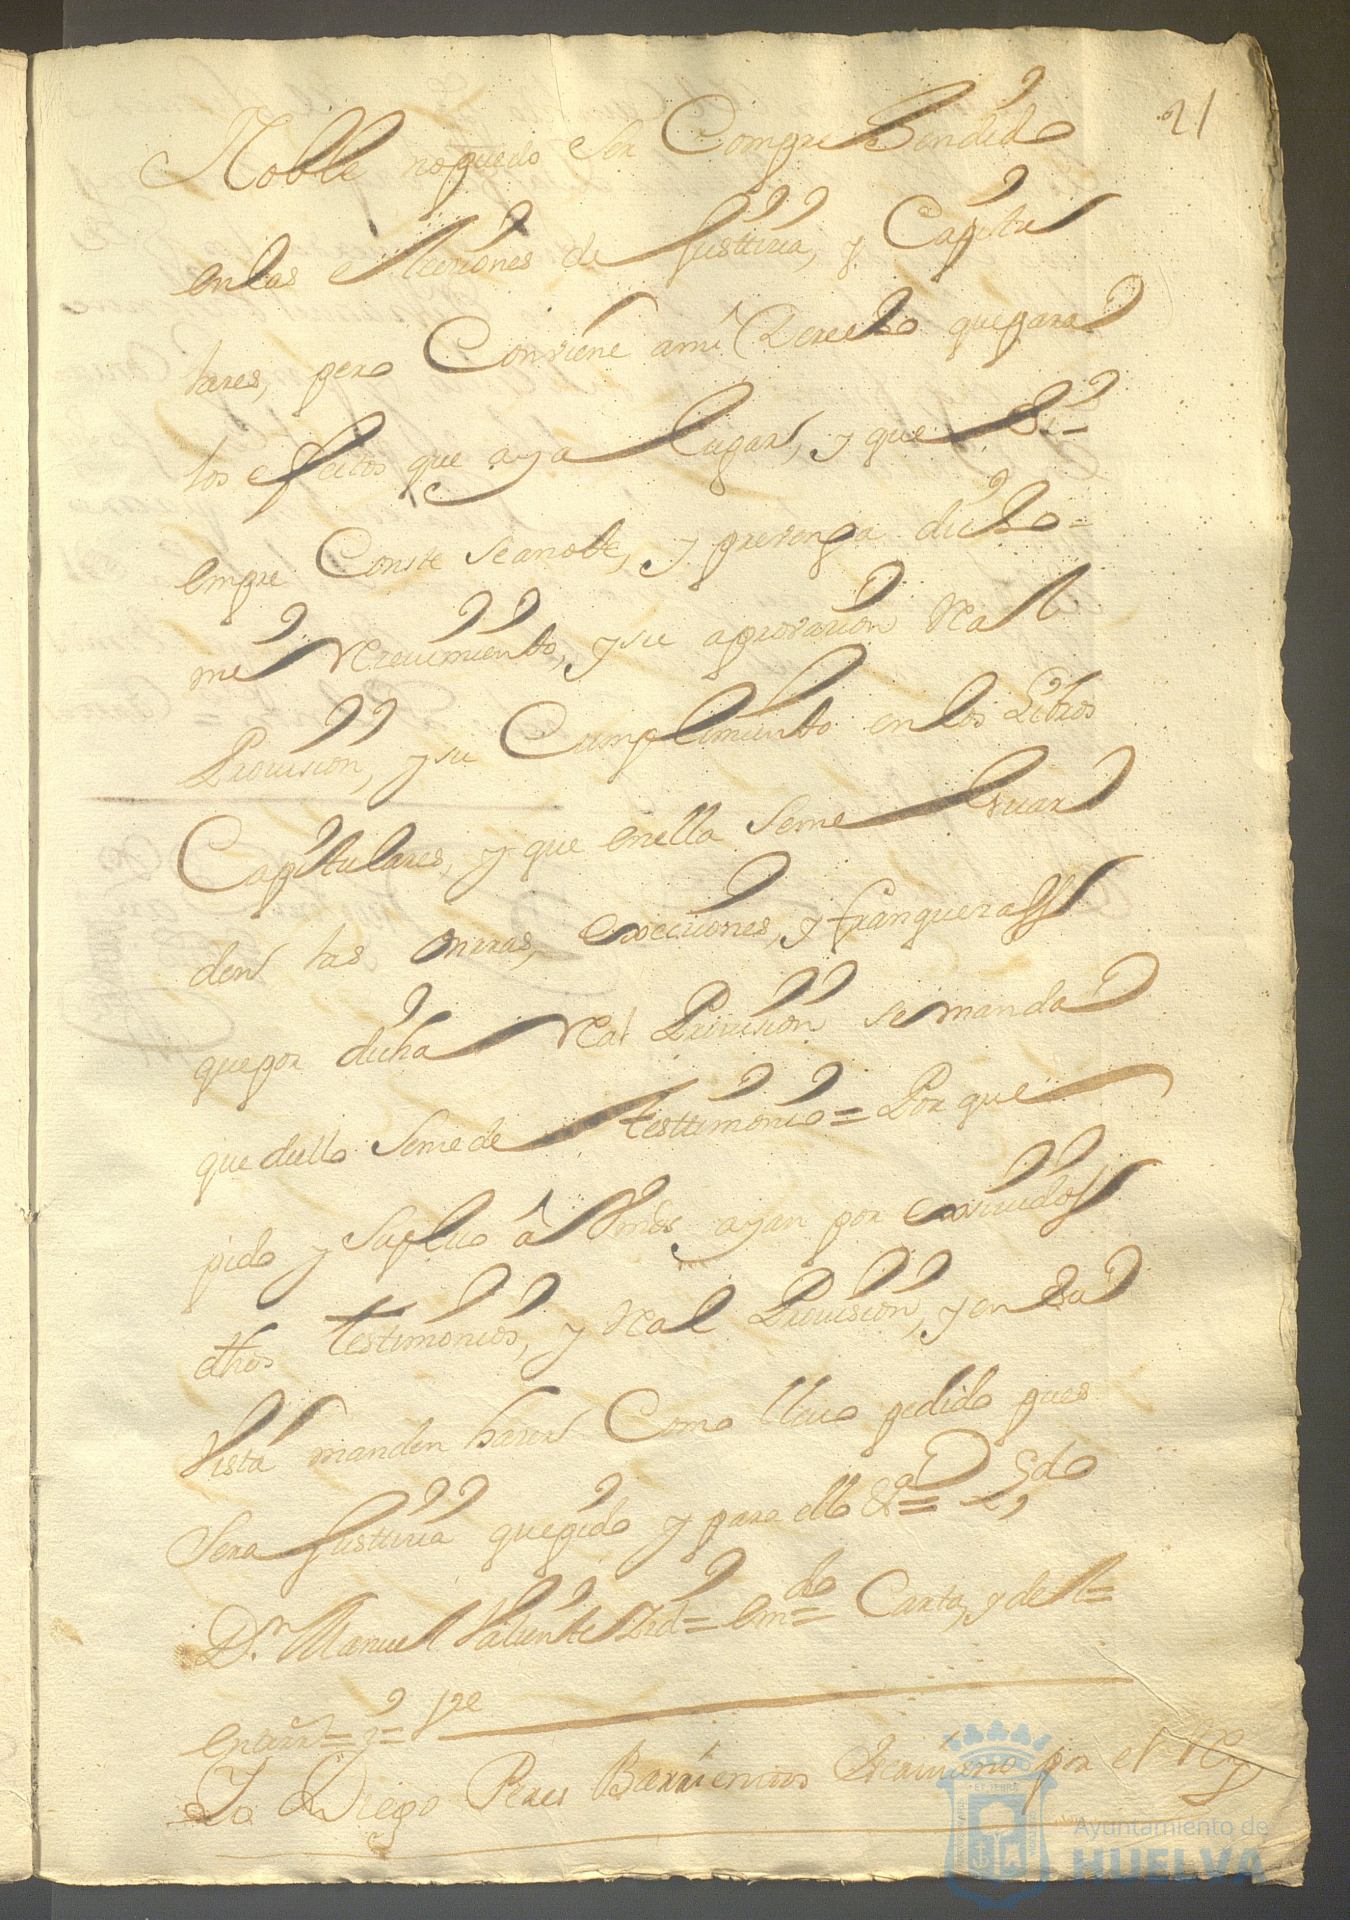 21
Noble no puedo ser Comprehendido
en las elecciones de Justticia, y Capitu
lares, pero Conviene ami Derecho que para
los efectos que aya lugar, y que Si=
empre Conste seanote, y prevenga dicho=
mi Recivimiento, y su aprovacion Real
Provision, y su Cumplimiento en los Libros
Capitulares, y que enella Seme Guar
den las onrras, execciones, y franquezass
que por dicha Real Provision se manda
que dello Semede Testtimonio= Por que
pido y Suplico â Vmds ayan por exsividoss
dhos Testimonios, y Real Provision, y en su
Vista manden hacer Como llevo pedido pues
Sera Justticia que pido y para ello &ª=
Dn. Manuel Valiente= emdo= Carta, y del=
Yo Diego Peres Barrientos Escrivano por el Rey
Ayuntamiento de
HUELVA